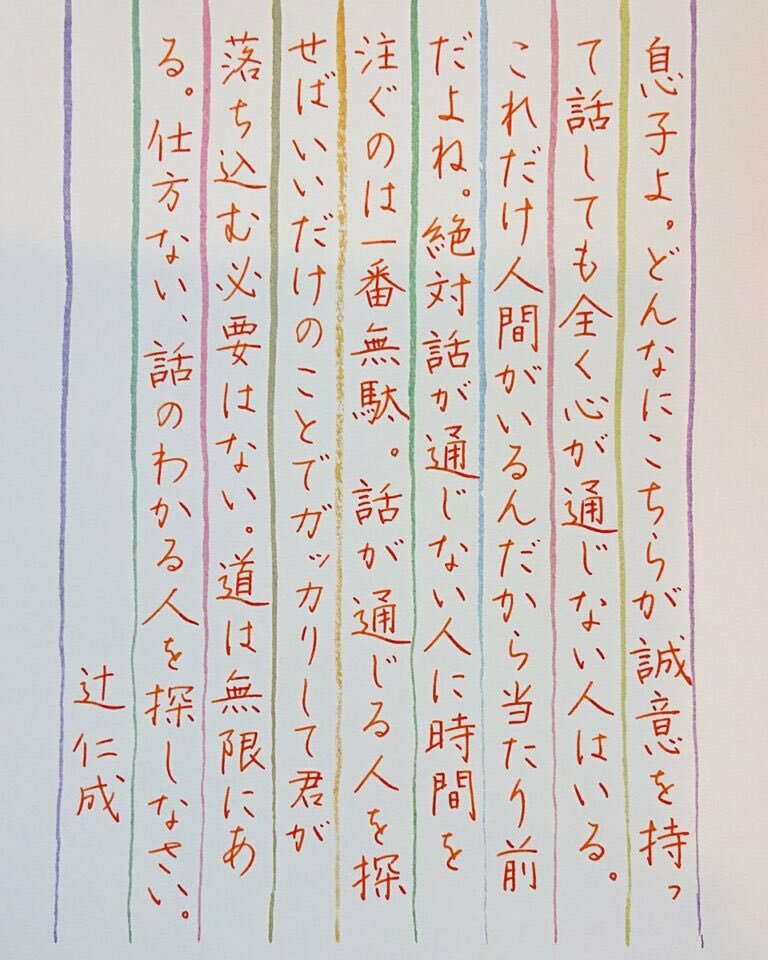 息子よ。どんなにこちらが誠意を持っ
て話しても全く心が通じない人はいる。
これだけ人間がいるんだから当たり前
だよね。絶対話が通じない人に時間を
注ぐのは一番無駄。話が通じる人を探
せばいいだけのことでガッカリして君が
落ち込む必要はない。道は無限にあ
る。仕方ない、話のわかる人を探しなさい。
辻仁成